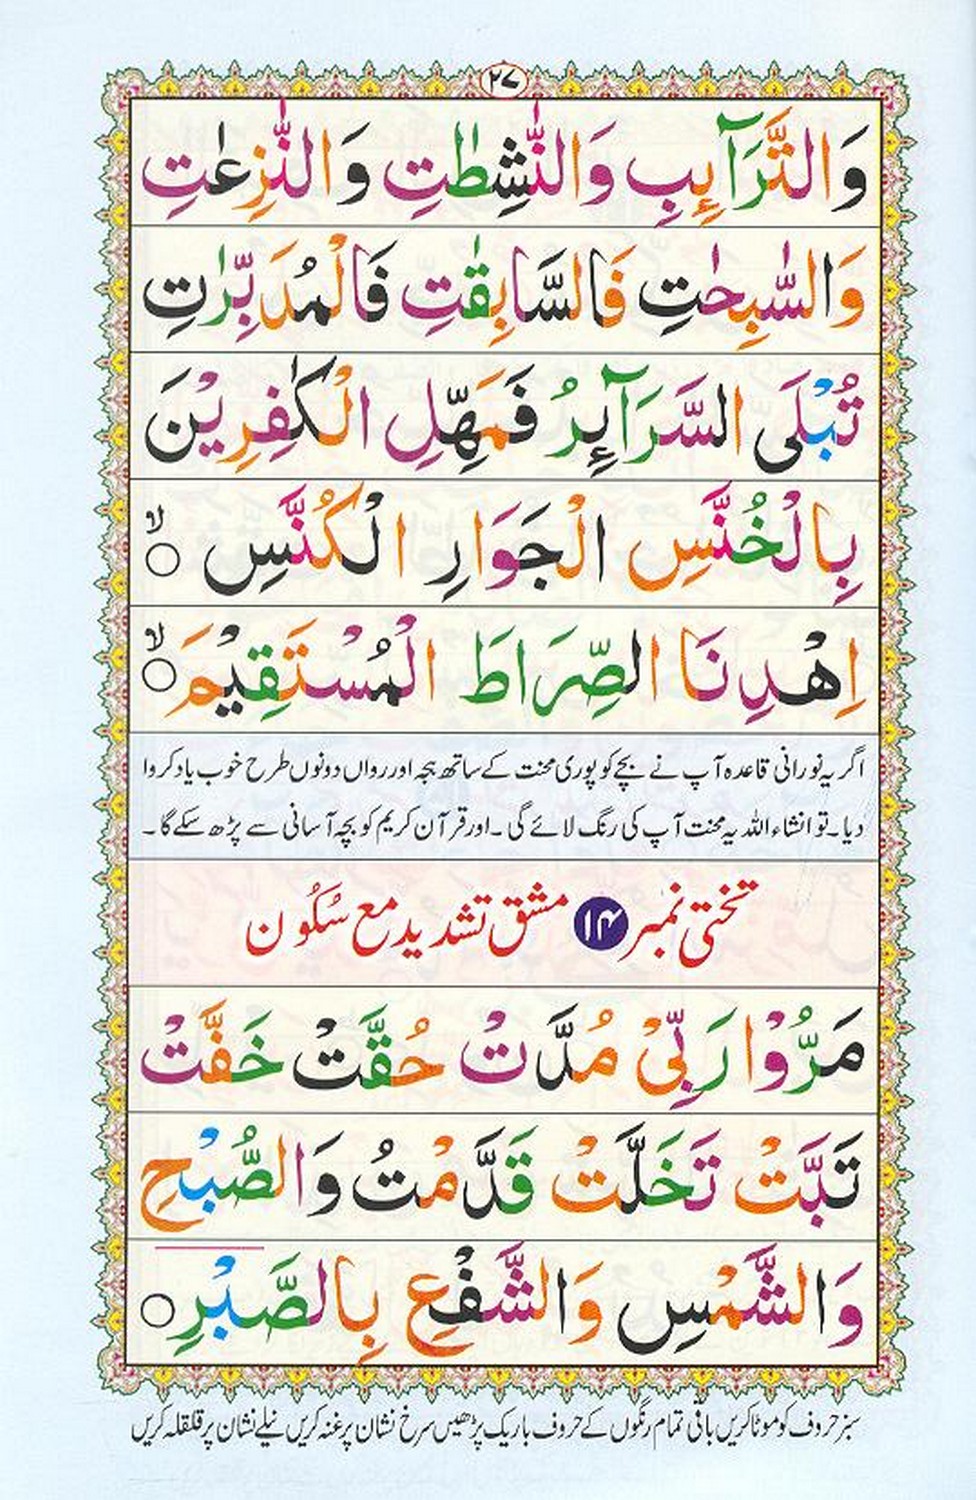 ۲۷
وَالتَّرَآئِبِ وَالنّٰشِطٰتِ وَالنّٰزِعٰتِ
وَالسّٰبِحٰتِ فَالسَّابِقٰتِ فَالْمُدَبِّرٰتِ
تُبْلَى السَّرَآئِرُ فَمَهِّلِ الْكٰفِرِيْنَ
بِالْخُنَّسِ الْجَوَارِ الْكُنَّسِ ۙ○
اِهْدِنَا الصِّرَاطَ الْمُسْتَقِيْمَ ۙ○
اگر یہ نورانی قاعدہ آپ نے بچے کو پوری محنت کے ساتھ ہجہ اور رواں دونوں طرح خوب یاد کروا
دیا۔ تو انشاء اللہ یہ محنت آپ کی رنگ لائے گی ۔ اور قرآن کریم کو بچہ آسانی سے پڑھ سکے گا ۔
تختی نمبر ۱۴ مشق تشدید مع سُکُون
مَرُّوْا رَبِّيْ مُدَّتْ حُقَّتْ خَفَّتْ
تَبَّتْ تَخَلَّتْ قَدَّمْتُ وَالصُّبْحِ
وَالشَّمْسِ وَالشَّفْعِ بِالصَّبْرِ ○
سبز حروف کو موٹا کریں باقی تمام رنگوں کے حروف باریک پڑھیں سرخ نشان پر غنہ کریں نیلے نشان پر قلقلہ کریں